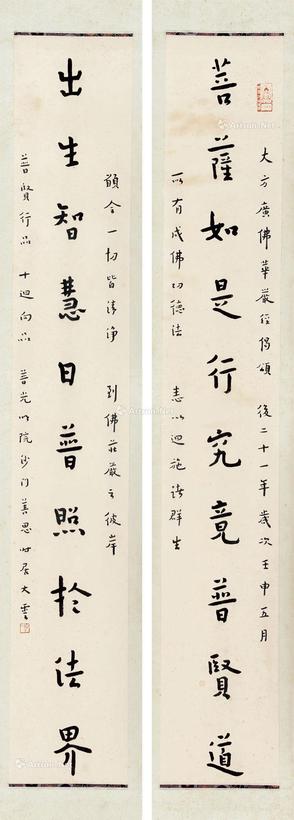 大方廣佛華嚴經偈頌 後二十一年歲次壬申五月
菩薩如是行究竟普賢道
所有成佛功德法 悉以迴施諸群生
願令一切皆清淨 到佛莊嚴之彼岸
出生智慧日普照於法界
普賢行品 十迴向品 普光明院沙门善思時居大雲